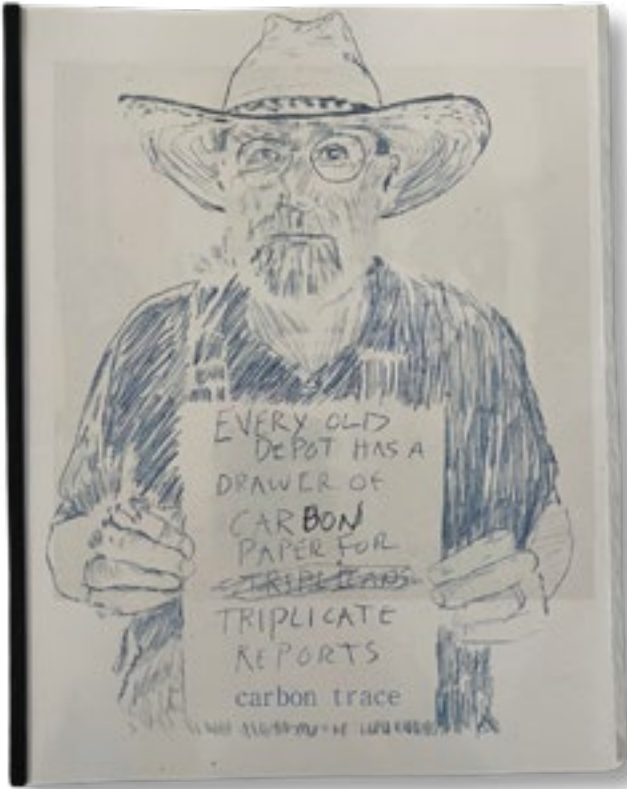 EVERY OLD
DEPOT HAS A
DRAWER OF
CARBON
PAPER FOR
TRIPLICATE
REPORTS
carbon trace